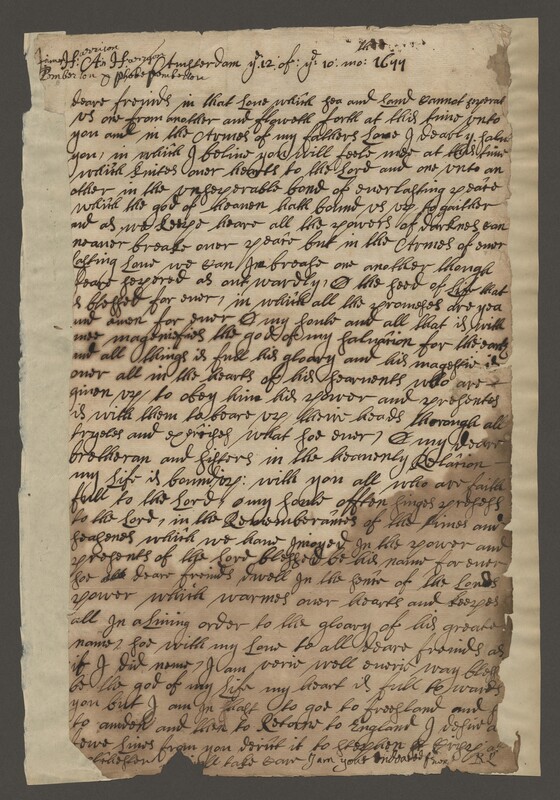 James Harrison
An Harryson
Pemberton & Phebe Pemberton
Amsterdam ye 12 of: ye 10 mo: 1677
deare freinds in that Love which sea and Land cannot seperat
us one from another and floweth forth at this time unto
you and in the Armes of my fathers Love I dearly salut
you, in which I belive you will feele mee at this time
which unites ouer hearts to the Lord and one unto an
other in the unseperable bond of everlasting peace
which the god of heaven hath bound us up togaither
and as we keepe heare all the powers of darknes can
neaver breake ouer peace but in the Armes of ever
lasting Love we can Imbrease one another though
feare sepered as out wardly, O the seed of Life that
is blessed for ever, in which all the promeses are yea
and amen for ever O my soule and all that is with
mee magenifies the god of my salvation for the earth
and all things is full his gloary and his magestie is
over all in the hearts of his searvents who are
given up, to obey him his power and presentes
is with them to beare up theire heads thorough all
tryeles and exersises what soe ever, O my deare
bretheran and sisters in the heavenly Relation
my Life is bound up: with you all who are faith
full to the Lord, o my soule offten singes preses
to the Lord, in the Rememberances of the times and
seasenes which we have Injoyed In the power and
presents of the Lord blessed be his name for ever
soe all deare freinds dwell In the sence of the Lords
power which warmes ouer hearts and keepes
all In a Living order to the gloary of his greate
name, soe with my Love to all deare freinds as
if I did name, I am verie well everie way bless
be the god of my Life my heart is full to wards
you but I am In hast to goe to freesland and
to amden and then to Retorne to England I desire a
fewe lines from you derict it to
will take care I am your endeared